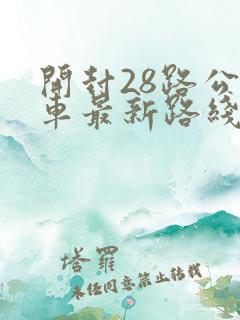 開封28路公
車最新路綫
塔羅
未經同意禁止轉載